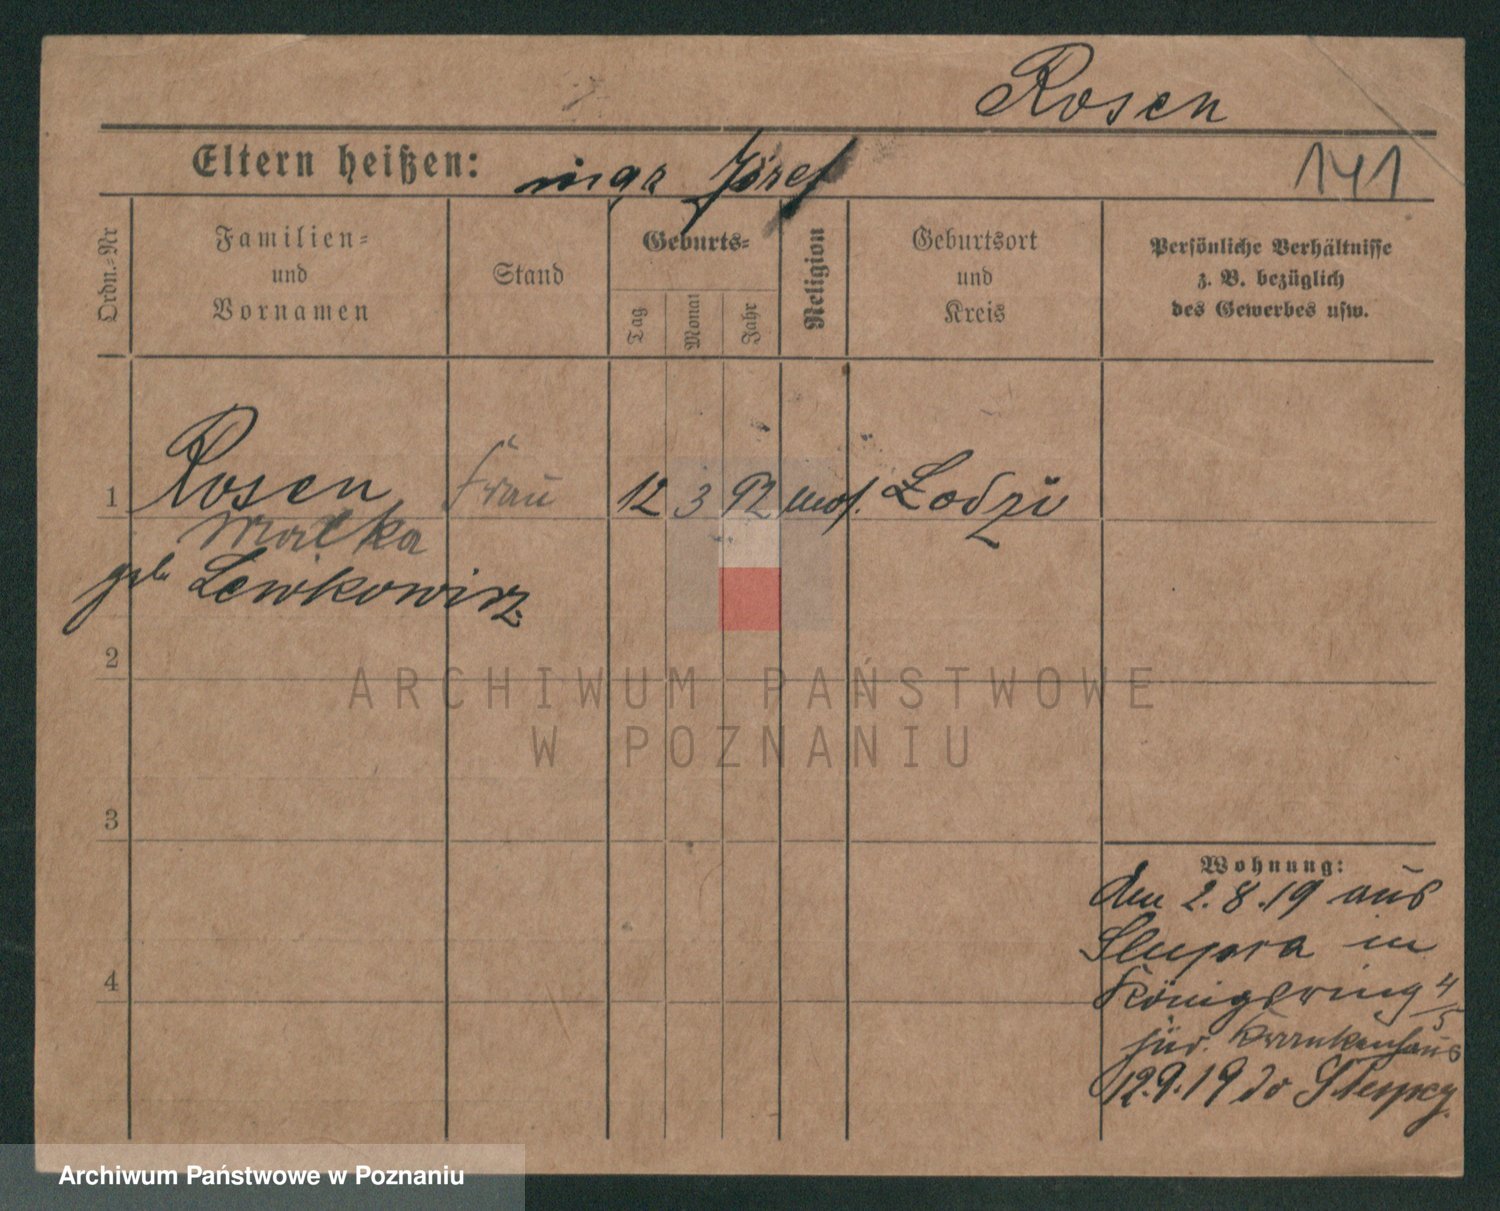 Rosen
Eltern heißen: Józef
141
Ordn.-Nr
Familien-
und
Vornamen
Stand
Geburts-
Tag
Monat
Jahr
Religion
Geburtsort
und
Kreis
Persönliche Verhältnisse
z. B. bezüglich
des Gewerbes usw.
1 Rosen Frau 12 3 92 mos. Łodzi
Malka
geb. Lewkowicz
2
3
4
Wohnung:
den 2.8.19 aus
Slupca in
Königsring 4/5
jüd. Krankenhaus
12.9.19 do Slupcy
ARCHIWUM PAŃSTWOWE
W POZNANIU
Archiwum Państwowe w Poznaniu